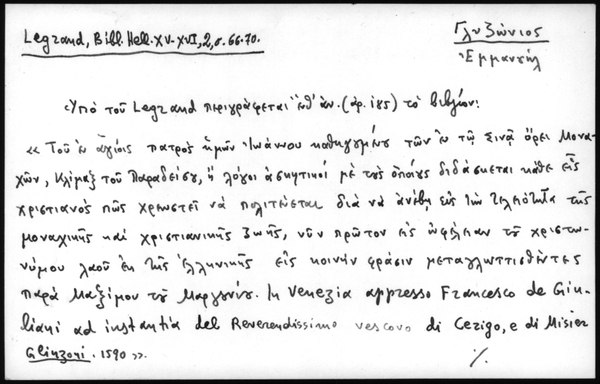 Legrand, Bibl. Hell. XV-XVI, 2, σ. 66-70.
Γλυζώνιος
Ἐμμανουήλ
Ὑπὸ τοῦ Legrand περιγράφεται ὑπ' ἀν. (ἀρ. 185) τὸ βιβλίον:
« Τοῦ ἐν ἁγίοις πατρὸς ἡμῶν Ἰωάννου καθηγουμένου τῶν ἐν τῷ Σινᾷ ὄρει Μονα-
χῶν, Κλίμαξ τοῦ Παραδείσου, ἢ λόγοι ἀσκητικοί μὲ τοὺς ὁποίους διδάσκεται κάθε εἷς
χριστιανὸς πῶς χρεωστεῖ νὰ πολιτεύεται διὰ νὰ ἀνέβῃ εἰς τὴν τελειότητα τῆς
μοναχικῆς καὶ χριστιανικῆς ζωῆς, νῦν πρῶτον εἰς ὠφέλειαν τοῦ χριστω-
νύμου λαοῦ ἐκ τῆς ἑλληνικῆς εἰς κοινὴν φράσιν μεταγλωττισθέντες
παρὰ Μαξίμου τοῦ Μαργουνίου. In Venezia appresso Francesco de Giu-
liani ad instantia del Reverendissimo vescovo di Cezigo, e di Misier
Glinzoni. 1590 ».
./.